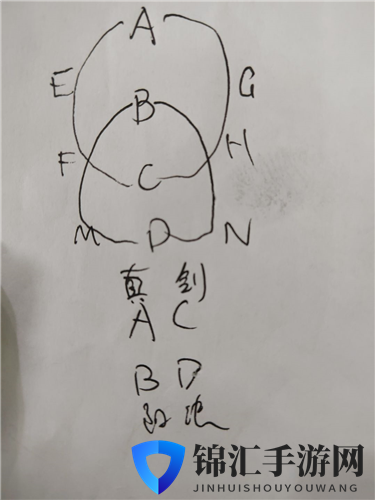 A
E G
B
F H
C
M D N
真 剑
A C
B D
锦汇手游网
JINHUISHOUYOUWANG